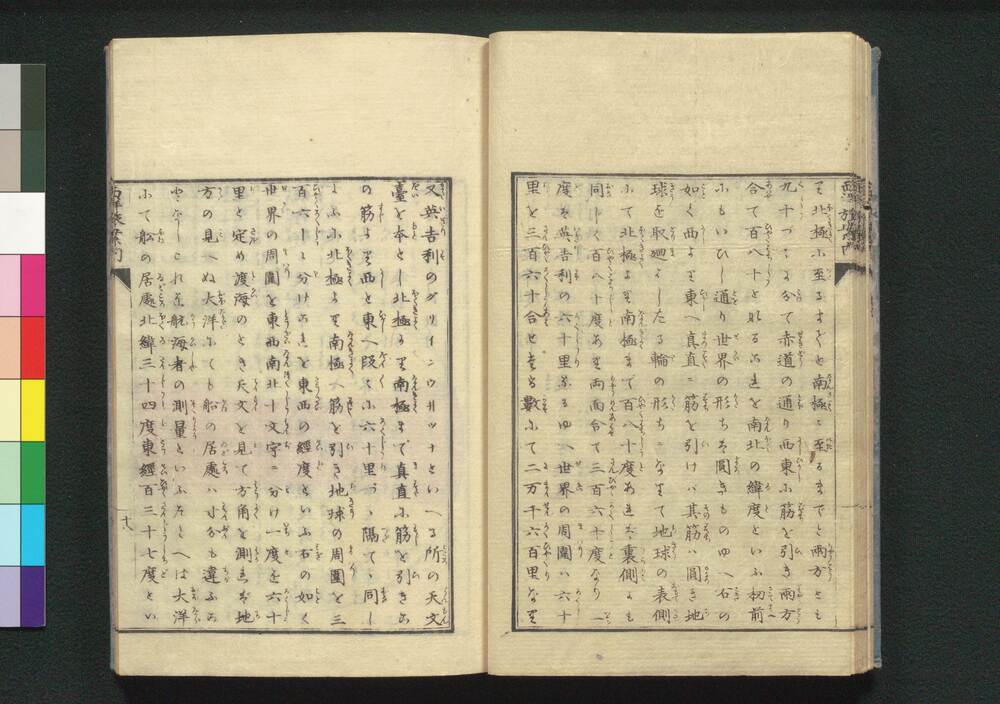 り北極に至るまでと南極に至るまでと両方とも
九十づゝに分て赤道の通り西東に筋を引き両方
合て百八十となるこれを南北の緯度といふ扨前
にもいひし通り世界の形ちを圓きものゆへ右の
如く西より東へ真直に筋を引けバ其筋ハ圓き地
球を取廻ハしたる輪の形ちになりて地球の表側
にて北極より南極まで百八十度あれバ裏側にも
同しく百八十度あり両面合て三百六十度なり一
度を英吉利の六十里なるゆへ世界の周圍ハ六十
里を三百六十合せたる數にて二万千六百里なり
又英吉利のグリインウ井ッチといへる所の天文
臺を本とし北極より南極まで真直に筋を引きこ
の筋より西と東へ段々に六十里づゝ隔てゝ同し
よふに北極より南極へ筋を引き地球の周圍を三
百六十に分けこれを東西の經度といふ右の如く
世界の周圍を東西南北十文字に分け一度を六十
里と定め渡海のとき天文を見て方角を測れバ地
方の見へぬ大洋にても船の居處ハ寸分も違ふこ
となしこれを航海者の測量といふたとへば大洋
にて船の居處北緯三十四度東經百三十七度とい
西洋旅案内
十八